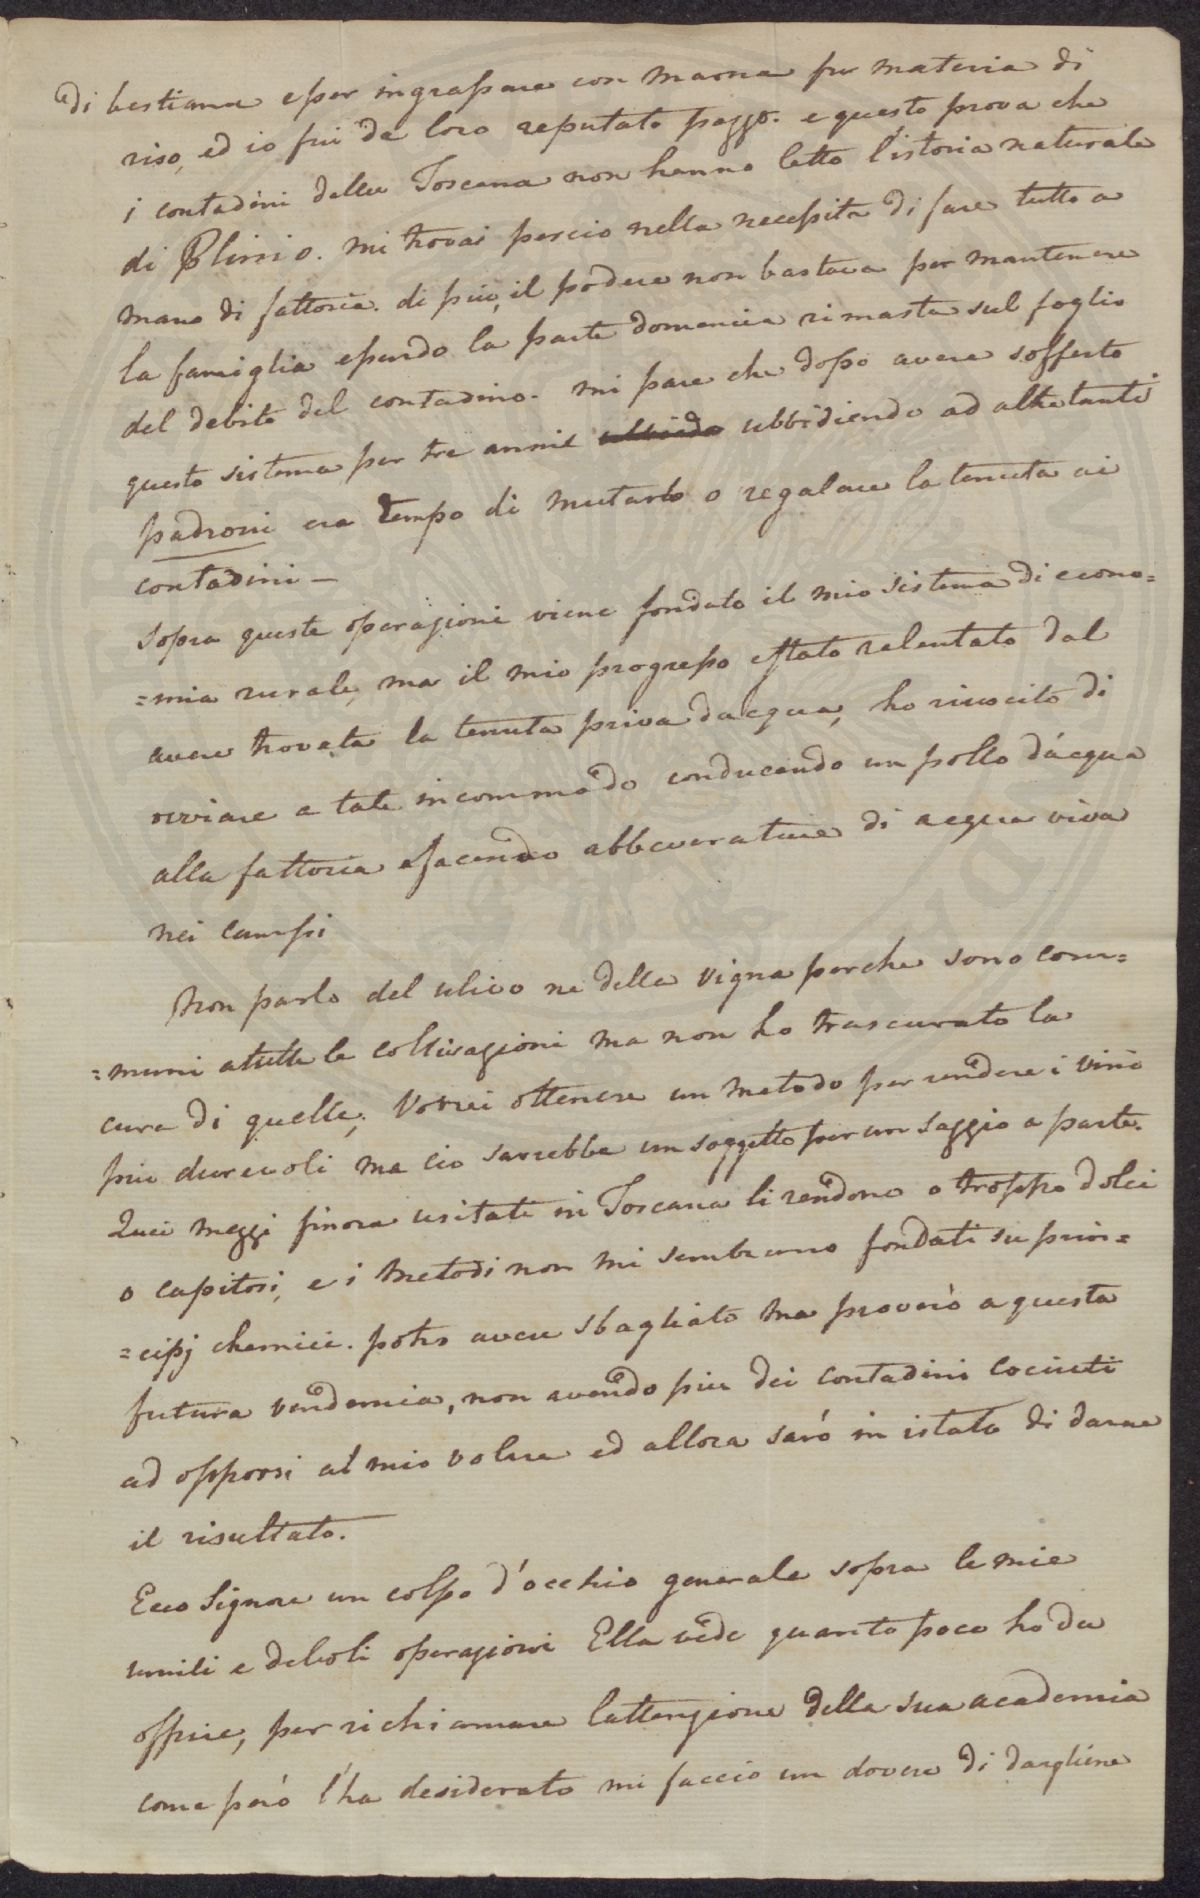 di bestiame e per ingrassare con marna fur materia di
riso, ed io fui da loro reputato pazzo. e questo prova che
i contadini della Toscana non hanno letto l'istoria naturale
di Plinio. mi trovai percio nella necessita di fare tutto a
mano di fattoria. di piu, il podere non bastava per mantenere
la famiglia essendo la parte domenica rimasta sul foglio
del debito del contadino. mi pare che dopo avere sofferto
questo sistema per tre anni ubbidiendo ad altretanti
padroni era tempo di mutarlo o regalare la tenuta ai
contadini —
Sopra queste operazioni viene fondato il mio sistema di econo=
=mia rurale, ma il mio progresso e stato ralentato dal
avere trovata la tenuta priva dacqua, ho riuscito di
ovviare a tale incommodo conducendo un pollo d'acqua
alla fattoria e facendo abbeverature di acqua viva
nei campi
Non parlo del ulivo ne della vigna perche sono com=
=muni a tutte le coltivazioni ma non ho trascurato la
cura di quelle, Vorrei ottenere un metodo per rendere i vini
piu durevoli ma cio sarrebbe un soggetto per un saggio a parte.
Quei mezzi finora usitate in Toscana li rendono o troppo dolci
o capitosi, e i metodi non mi sembrano fondati su prin=
=cipj chemici. potro avere sbagliato ma proverò a questa
futura vendemia, non avendo piu dei contadini cociuti
ad opporsi al mio volere ed allora saró in istato di darne
il risultato.
Ecco Signore un colpo d'occhio generale sopra le mie
umili e deboli operazioni Ella vede quanto poco ho da
offrire, per richiamare l'attenzione della sua academia
come peró l'ha desiderato mi faccio un dovere di dargliene